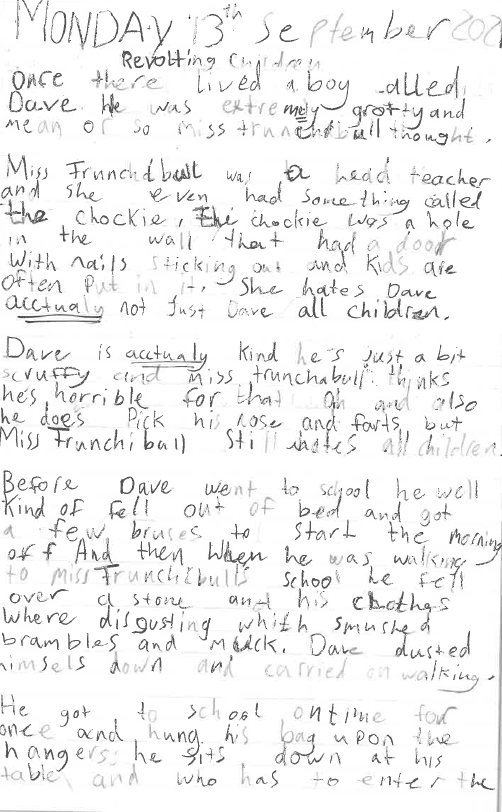 MONDAY 13th September 202
Revolting Children
Once there lived a boy called
Dave He was extremely grotty and
mean or so miss trunchbull thought.
Miss Trunchdbull was a head teacher
and she even had something called
the chockie, The chockie was a hole
in the wall that had a door
with nails sticking out and kids are
often put in it. She hates Dave
acctualy not Just Dave all children.
Dave is acctualy kind he's just a bit
scruffy and miss trunchabull thinks
he's horrible for that Oh and also
he does Pick his nose and farts, but
Miss Trunchiball still hates all children.
Before Dave went to school he well
kind of fell out of bed and got
a few bruses to start the morning
off And then When he was walking
to miss Trunchibull's school he fell
over a stone and his clothes
where disgusting whith smushed
brambles and muck. Dave dusted
himsels down and carried on walking.
He got to school ontime for
once and hung his bag upon the
hangerss he sits down at his
table and who has to enter the